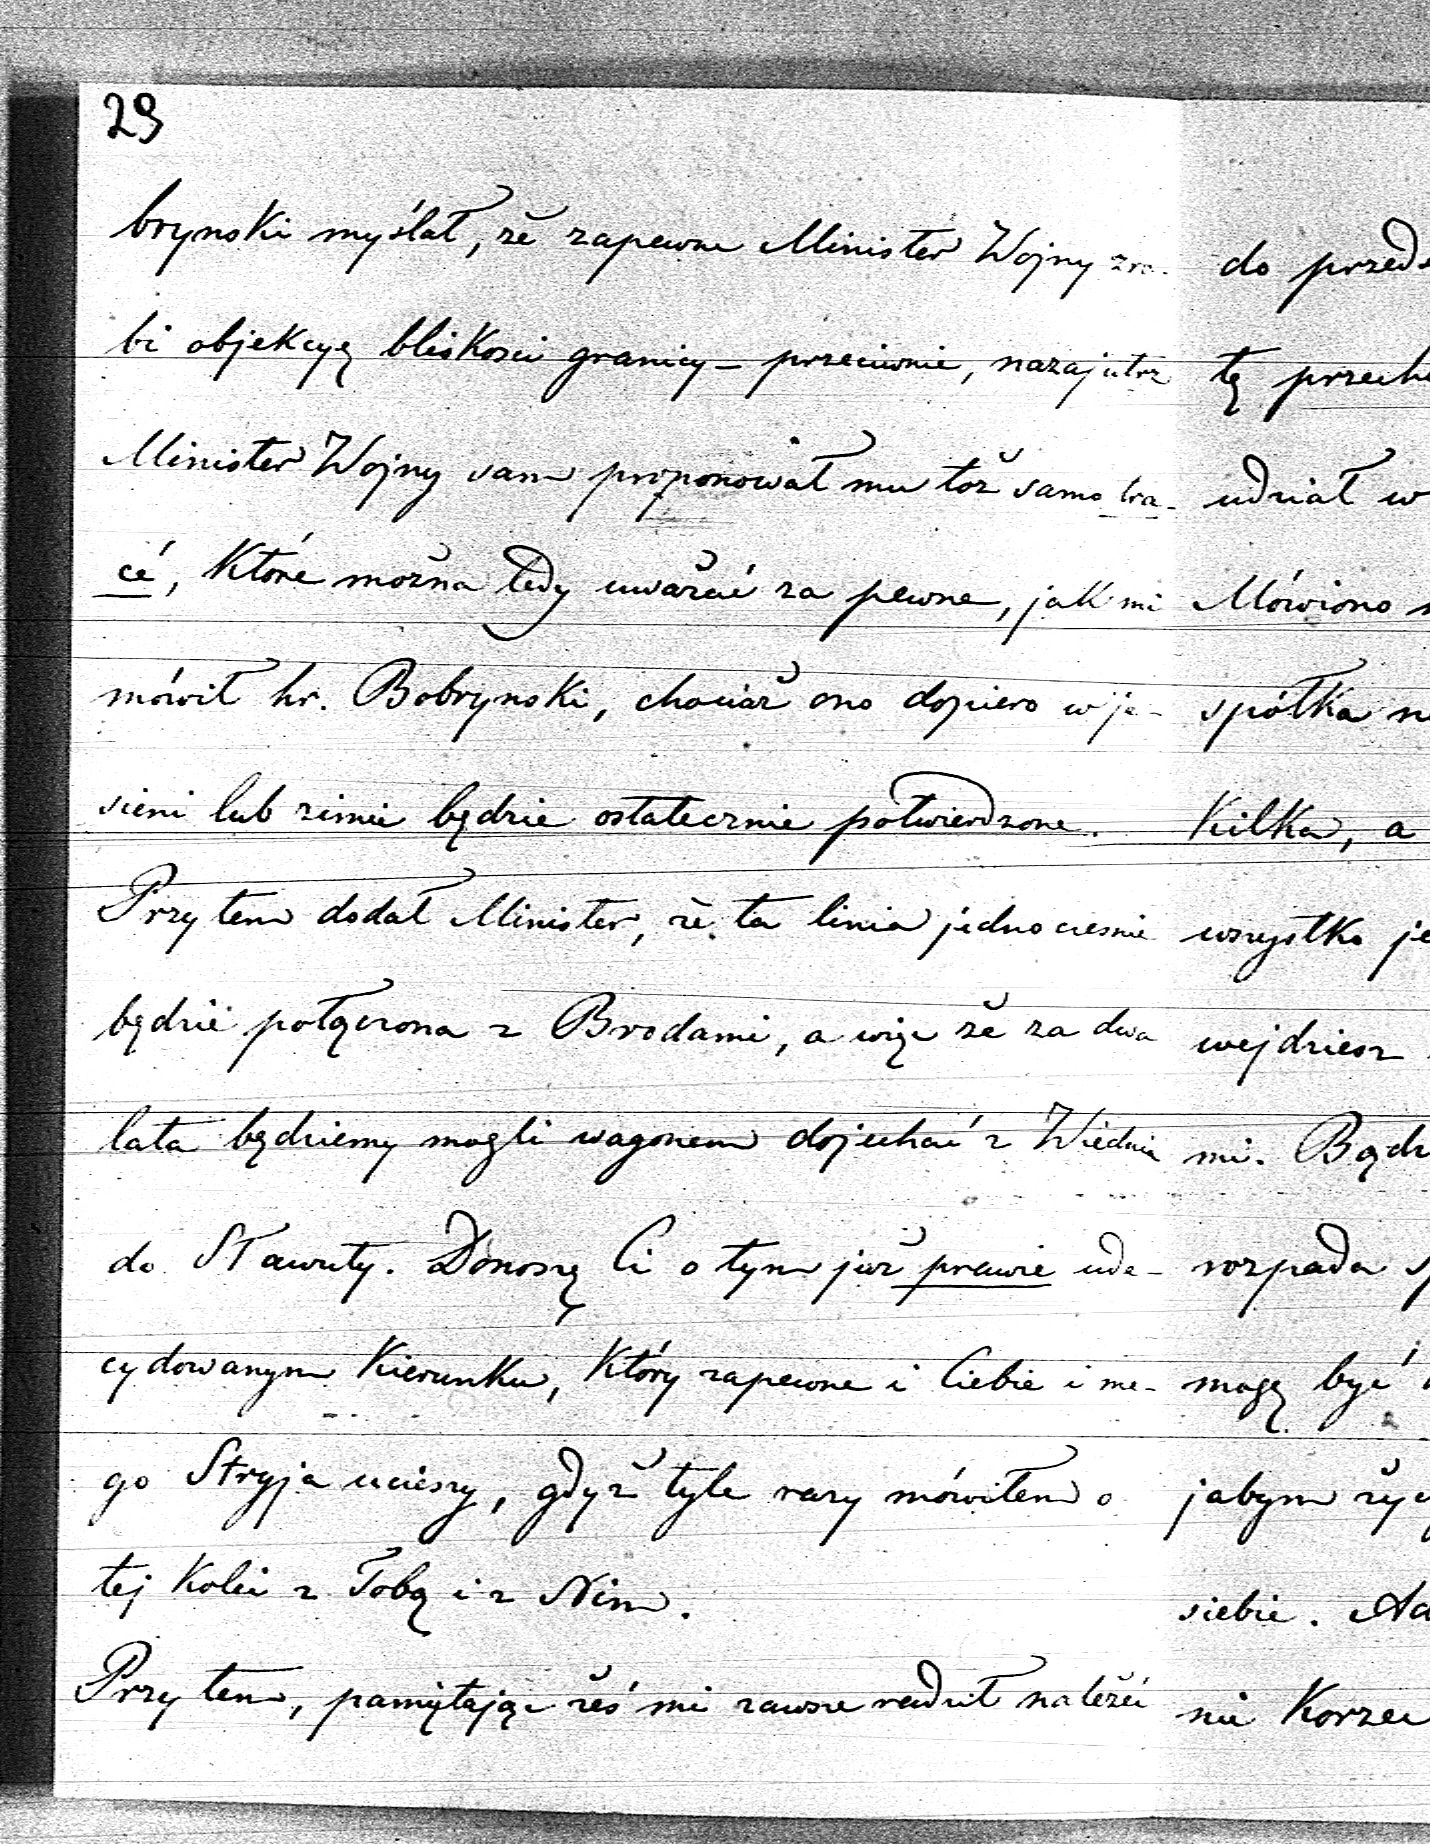 29
brynski myślał, że zapewne Minister Wojny zro-
bi objekcyę bliskosci granicy – przeciwnie, nazajutrz
Minister Wojny sam proponował mu toż samo tra-
cé, które można tedy uważać za pewne, jak mi
mówił hr. Bobrynski, chociaż ono dopiero w je-
sieni lub zimie będzie ostatecznie potwierdzone.
Przy tem dodał Minister, że ta linia jednocześnie
będzie połączona z Brodami, a więc że za dwa
lata będziemy mogli wagonem dojechać z Wiednia
do Sławuty. Donoszę Ci o tym już prawie ude-
cydowanym kierunku, który zapewne i Ciebie i me-
go Stryja ucieszy, gdyż tyle razy mówiłem o
tej kolei z Tobą i z Nim.
Przy tem, pamiętając żeś mi zawsze radził należéć
do przeds
tę przech
udział w
Mówiono
spółka
Kilka, a
wszystko je
wejdziesz
mi. Bądź
rozpada
mogę być
jabym życ
siebie. Ad
nie Korzec